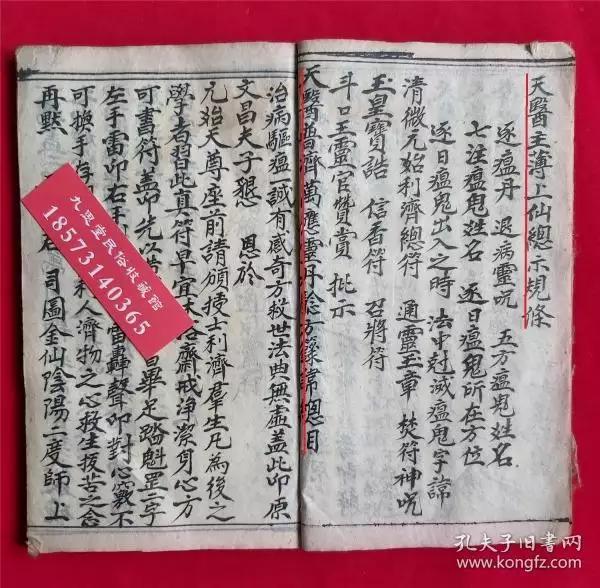 天醫主薄上仙總示規條
逐瘟丹 退病靈呪 五方瘟鬼姓名
七注瘟鬼姓名 逐日瘟鬼所在方位
逐日瘟鬼出入之時 法中尅滅瘟鬼字諱
清微元始利濟總符 通靈玉章 焚符神呪
玉皇寶誥 信香符 召將符
斗口王靈官贊賞 批示
天醫普濟萬應靈丹 方 總目
治病驅瘟一誠有感奇方救世法典無虛蓋此印原
文昌夫子懇 恩於
元始天尊座前請頒挾士利濟羣生凡為後之
學者習此真符早宜沐浴齋戒淨潔身心方
可書符蓋印先以 畢足踏魁罡二字
左手雷印右手 雷轟聲印對心竅不
可換手存 利人濟物之心救生援苦之念
再默 司圖金仙陰陽二度師上
九思堂民俗收藏館
18573140365
孔夫子旧书网
kongfz.com